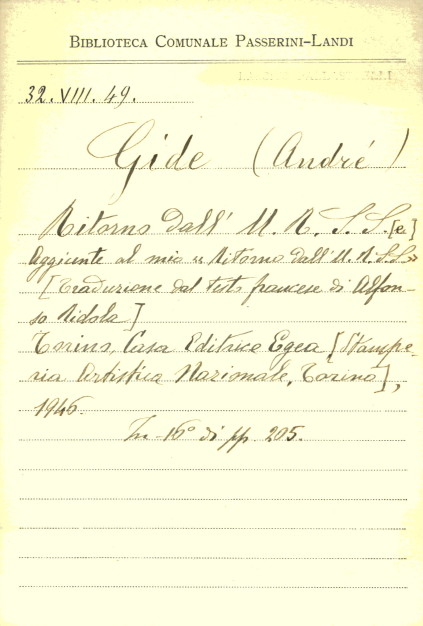 BIBLIOTECA COMUNALE PASSERINI-LANDI
32. VIII. 49.
Gide (André)
Ritorno dall' U. R. S. S. [e]
Aggiunte al mio « Ritorno dall' U. R. S. S. »
[Traduzione dal testo francese di Alfon-
so Ridola]
Torino, Casa Editrice Egea [Stampe-
ria Artistica Nazionale, Torino],
1946.
In 16° di pp. 205.